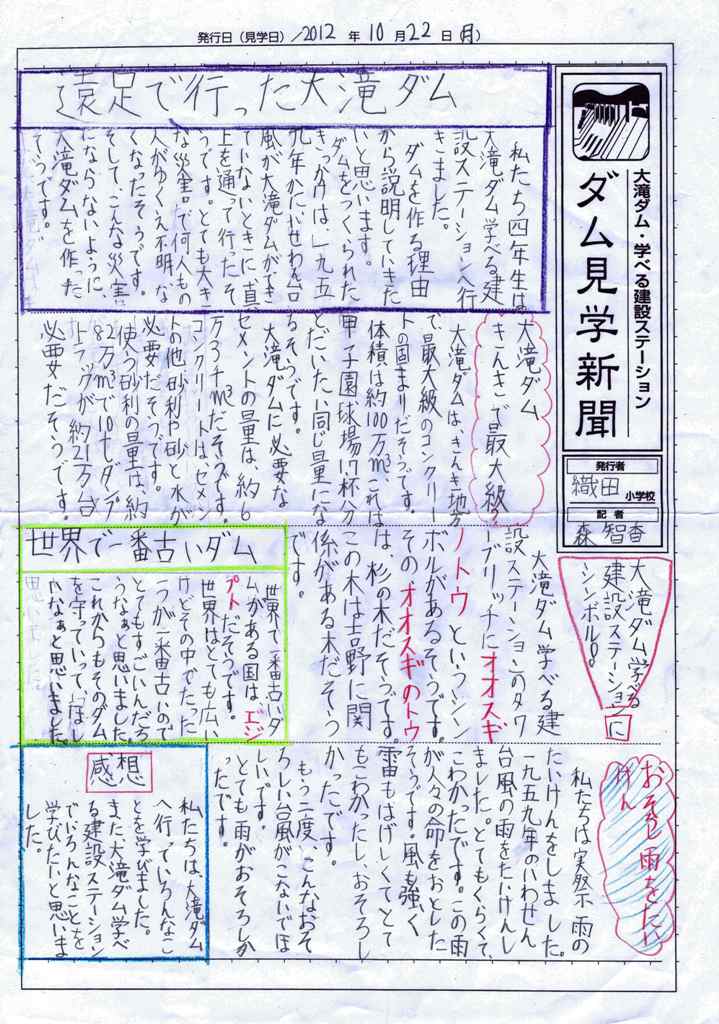 発行日（見学日）/2012 年 10 月 22 日（月）
大滝ダム・学べる建設ステーション
ダム見学新聞
発行者
織田 小学校
記者
森 智香
遠足で行った大滝ダム
私たち四年生は、
大滝ダム学べる建
設ステーションへ行
きました。
ダムを作る理由
から説明していきた
いと思います。
ダムをつくられた
きっかけは、一九五
九年かたいせわん台
風が大滝ダムができ
ていないときに真
上を通って行ったそ
うです。とても大き
な災害で何人もの
人がゆくえ不明にな
くなったそうです。
そして、こんな災害
にならないように、
大滝ダムを作った
そうです。
大滝ダム
きんきで最大級
大滝ダムは、きんき地方
で、最大級のコンクリー
トの固まりだそうです。
体積は約100万m³、これは
甲子園球場1.7杯分
とだいたい同じ量にな
るそうです。
大滝ダムに必要な
セメントの量は、約6
万3千m³だそうです。
コンクリートは、セメン
トの他砂利や砂と水が
必要だそうです。
使う砂利の量は、約
82万m³で10tダンプ
トラックが約21万台
必要だそうです。
大滝ダム学べる
建設ステーションに
シンボル!?
大滝ダム学べる建
設ステーションのタワ
ーブリッチにオオスギ
ノトウというシン
ボルがあるそうです。
そのオオスギのトウ
は、杉の木だそうです。
この木は吉野に関
係がある木だそう
です。
世界で一番古いダム
世界で一番古いダ
ムがある国は、エジ
プトだそうです。
世界はとても広い
けどその中でたった
一つが一番古いので
とてもすごいんだろ
うなぁと思いました。
これからもそのダム
を守っていって、ほし
いなぁと思いました。
おそろし雨をたい
けん
私たちは実際、雨の
たいけんをしました。
一九五九年のいわせん
台風の雨をたいけんし
ました。とてもくらくて、
こわかったです。この雨
が人々の命をおとした
そうです。風も強く
雷もはげしくてとて
もこわかったし、おそろし
かったです。
もう二度、こんなおそ
ろしい台風がこないでほ
しいです。
とても雨がおそろしか
ったです。
感想
私たちは、大滝ダム
へ行っていろんなこ
とを学びました。
また大滝ダム学べ
る建設ステーション
でいろんなことを
学びたいと思いま
した。